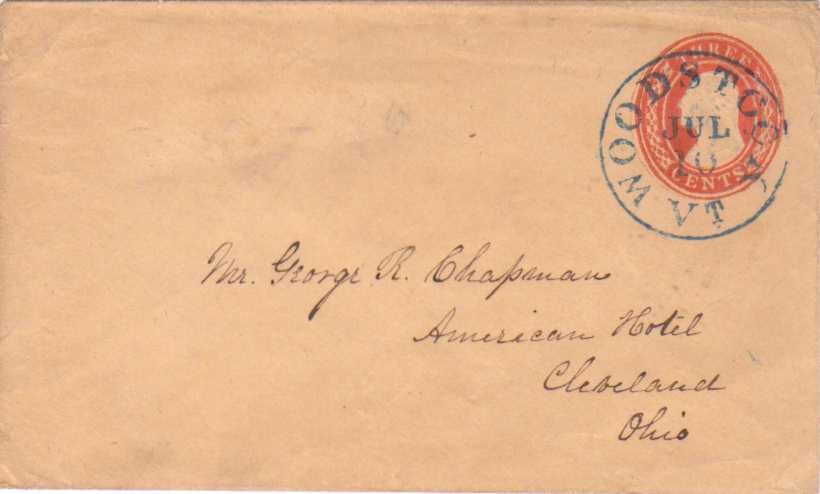 THREE
CENTS
WOODSTOCK
VT
JUL
10
Mr. George R. Chapman
American Hotel
Cleveland
Ohio